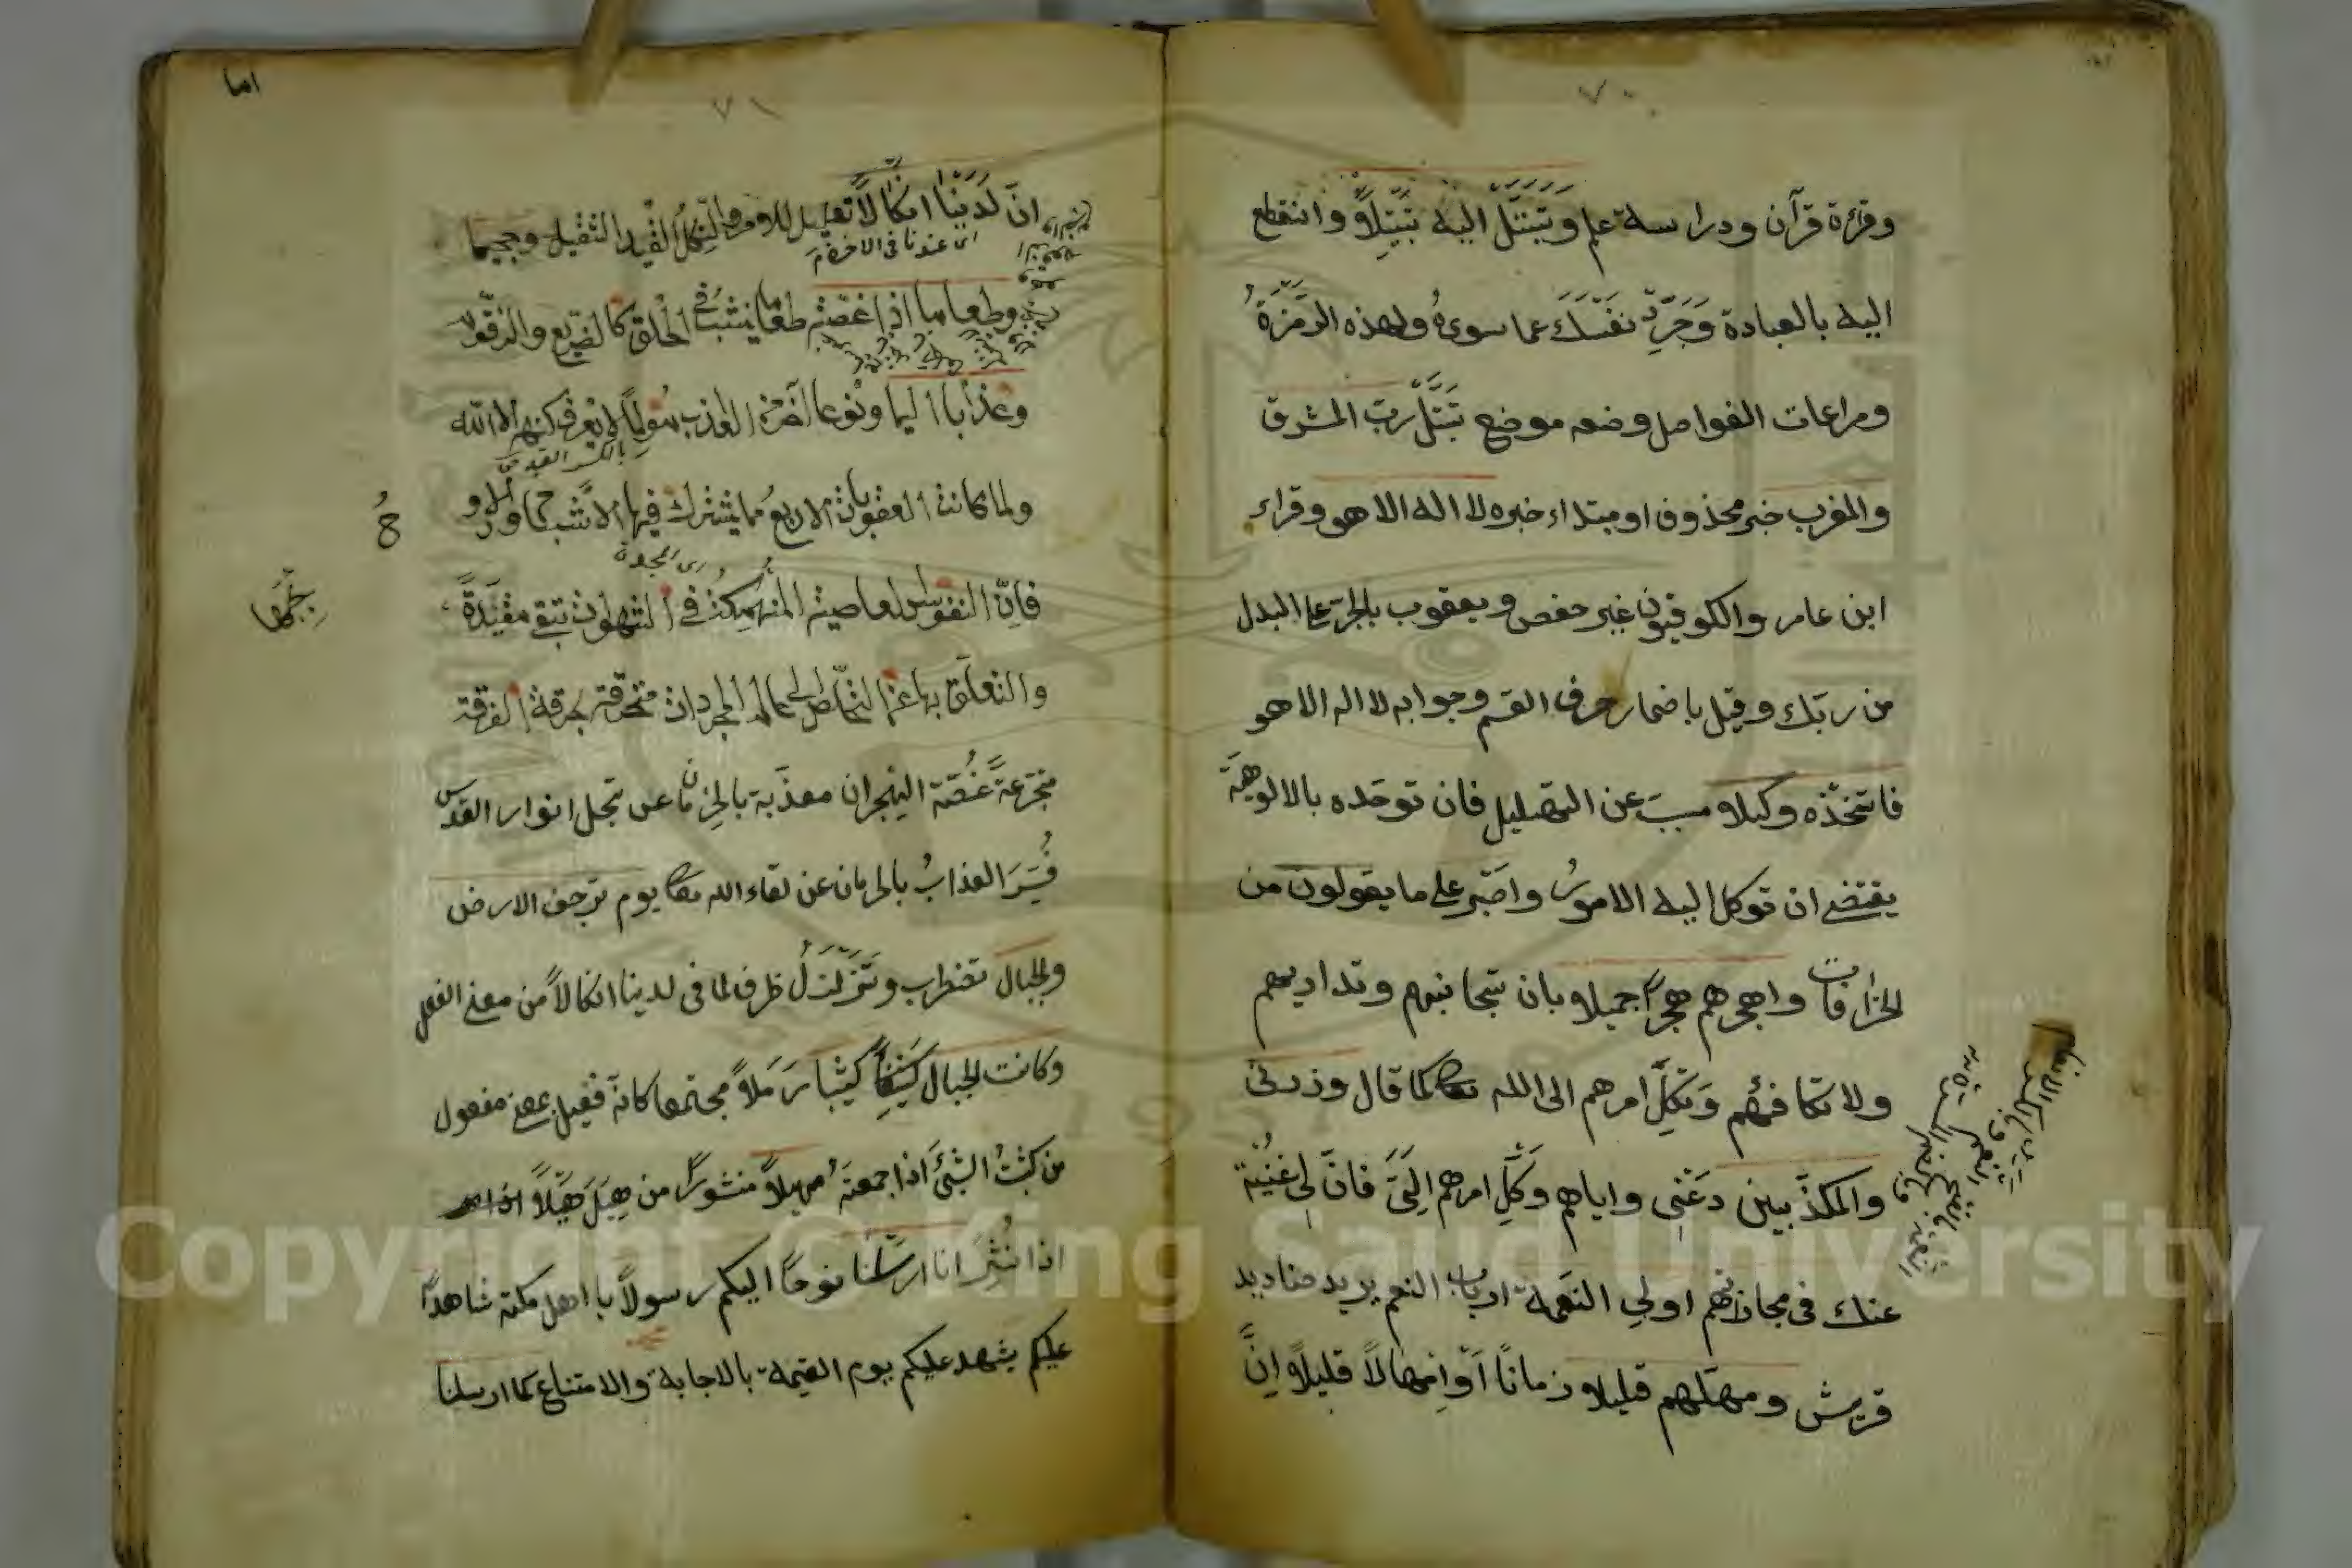 ٧٠
وقرءة قرآن ودراسة علم وَتَبَتَّلْ اليه تَبْتِيلاً وانقطع
اليه بالعبادة وَجَرِّدْ نَفْسَكَ عما سوىهُ ولهذه الرَمْزَةُ
ومراعات الفواصل وضعه موضع تَبَتُّلْ ربّ المشرق
والمغرب خبر محذوف او مبتداء خبره لا اله الا هو وقراء
ابن عامر والكوفيون غير حفص ويعقوب بالجرّ على البدل
من ربّك وقيل باضمار حرف القسم وجوابه لا اله الا هو
فاتّخذْه وكيلا مسبّ عن التهليل فان توحّده بالالوهيّة
يقتضى ان توكل اليه الامورُ واصبر على ما يقولون من
الخرافات واهجرهم هجرًا جميلا بان تجانبهم وتداريهم
ولا تكافئهم وَتَكِلَ امرهم الى الله تعالى كما قال وذرنى
والمكذّبين دَعْنِى واياهم وَكِّلِ امرهم اِلَىَّ فانّ لى غُنْيَة
عنك فى مجازاتهم اولى النَعْمة ارباب النعم يريد صناديد
قريش ومهّلهم قليلا زمانًا اَوْ اِمْهالاً قليلاً اِنَّ
٧١
اما
انّ لَدَيْنَا انكالاً تعليل للامر والنِكْلُ القَيْد الثقيل وجحيما
اى عندنا فى الاخرة
وطعاما ذا غصّة طعاما ينشب فى الحلق كالضريع والزقوم
وعذابا اليما ونوعا آخَرَ من العذاب مُولِمًا لا يعرف كنهه الا الله
ولما كانت العقوبات الاربعُ مما يشترك فيها الاشباح و
فانّ النفوس العاصية المنهمكة فى الشهوات تبقى مقيّدةً
بِحُبِّهَا
والتعلّق بها عن التخلّص الى عالم المجردات متحرقة بحرقة الفرقة
متجرّعةً غُصّة الهجران معذّبة بالحرمان عن تجلى انوار القدس
فُسِّرَ العذابُ بالحرمان عن لقاء الله تعالى يوم ترجف الارض
والجبال تضطرب وتَتَزَلْزَلُ ظرف لما فى لدينا انكالاً من معنى الفعل
وكانت الجبال كَثِيبًا كثيبا رَمَلاً مجتمعا كانّه فعيل بمعنى مفعول
من كثبْتُ الشىءَ اذا جمعتَهُ مهيلاً منثورًا من هِيلَ هَيْلاً
اذا نُثِرَ انا ارسَلْنا نوحًا اليكم رسولاً يا اهل مكة شاهدًا
عليكم يشهد عليكم يوم القيمة بالاجابة والامتناع كما ارسلنا
Copyright © King Saud University
1957